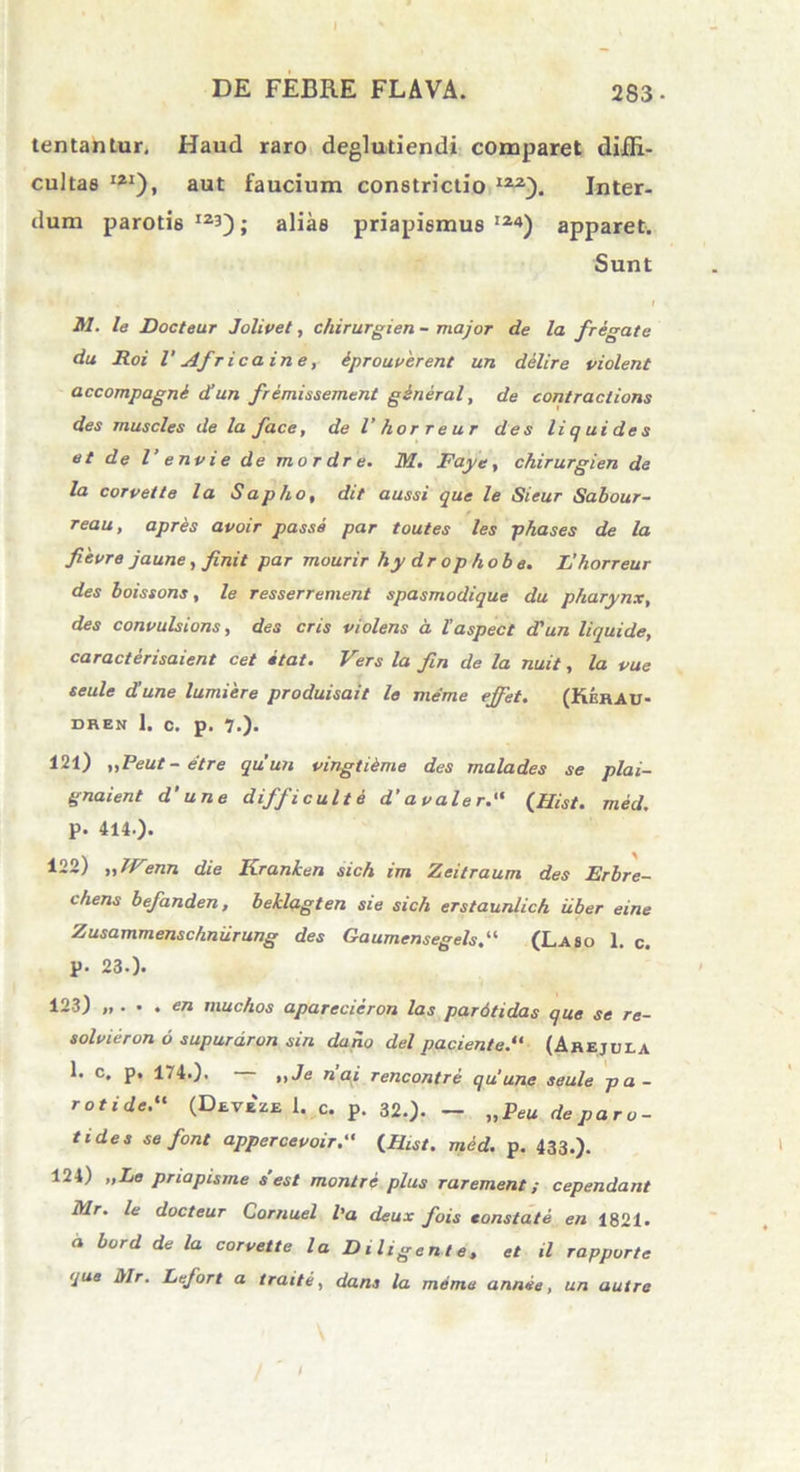 DE FEBRE FLAVA. 283
tentantur. Haud raro deglutiendi comparet diffi-
cultas ¹²¹), aut faucium constrictio ¹²²). Inter-
dum parotis ¹²³); aliàs priapismus ¹²⁴) apparet.
Sunt
M. le Docteur Jolivet, chirurgien-major de la frégate
du Roi l'Africaine, éprouvèrent un délire violent
accompagné d'un frémissement général, de contractions
des muscles de la face, de l'horreur des liquides
et de l'envie de mordre. M. Faye, chirurgien de
la corvette la Sapho, dit aussi que le Sieur Sabour-
reau, après avoir passé par toutes les phases de la
fièvre jaune, finit par mourir hydrophobe. L'horreur
des boissons, le resserrement spasmodique du pharynx,
des convulsions, des cris violens à l'aspect d'un liquide,
caractérisaient cet état. Vers la fin de la nuit, la vue
seule d'une lumière produisait le même effet. (KÉRAU-
DREN l. c. p. 7.).
121) „Peut-être qu'un vingtième des malades se plai-
gnaient d'une difficulté d'avaler.“ (Hist. méd.
p. 414.).
122) „Wenn die Kranken sich im Zeitraum des Erbre-
chens befanden, beklagten sie sich erstaunlich über eine
Zusammenschnürung des Gaumensegels.“ (LASO l. c.
p. 23.).
123) „ . . . en muchos apareciéron las parótidas que se re-
solviéron ó supuráron sin daño del paciente.“ (AREJULA
l. c. p. 174.). — „Je n'ai rencontré qu'une seule pa-
rotide.“ (DEVÈZE l. c. p. 32.). — „Peu de paro-
tides se font appercevoir.“ (Hist. méd. p. 433.).
124) „Le priapisme s'est montré plus rarement; cependant
Mr. le docteur Cornuel l'a deux fois constaté en 1821.
à bord de la corvette la Diligente, et il rapporte
que Mr. Lefort a traité, dans la même année, un autre